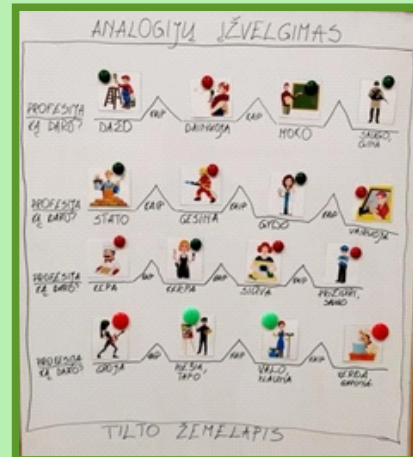 ANALOGIJŲ ĮŽVELGIMAS
PROFESIJA
KĄ DARO? DAŽO KAIP DAINUOJA KAIP MOKO KAIP SAUGO,
GINA
PROFESIJA
KĄ DARO? STATO KAIP GESINA KAIP GYDO KAIP VAIRUOJA
PROFESIJA
KĄ DARO? KEPA KAIP KERPA KAIP SIUVA KAIP PRIŽIŪRI,
SAUGO
PROFESIJA
KĄ DARO? GROJA KAIP PIEŠIA,
TAPO KAIP VALO,
PLAUNA KAIP VERDA
TILTO ŽEMĖLAPIS